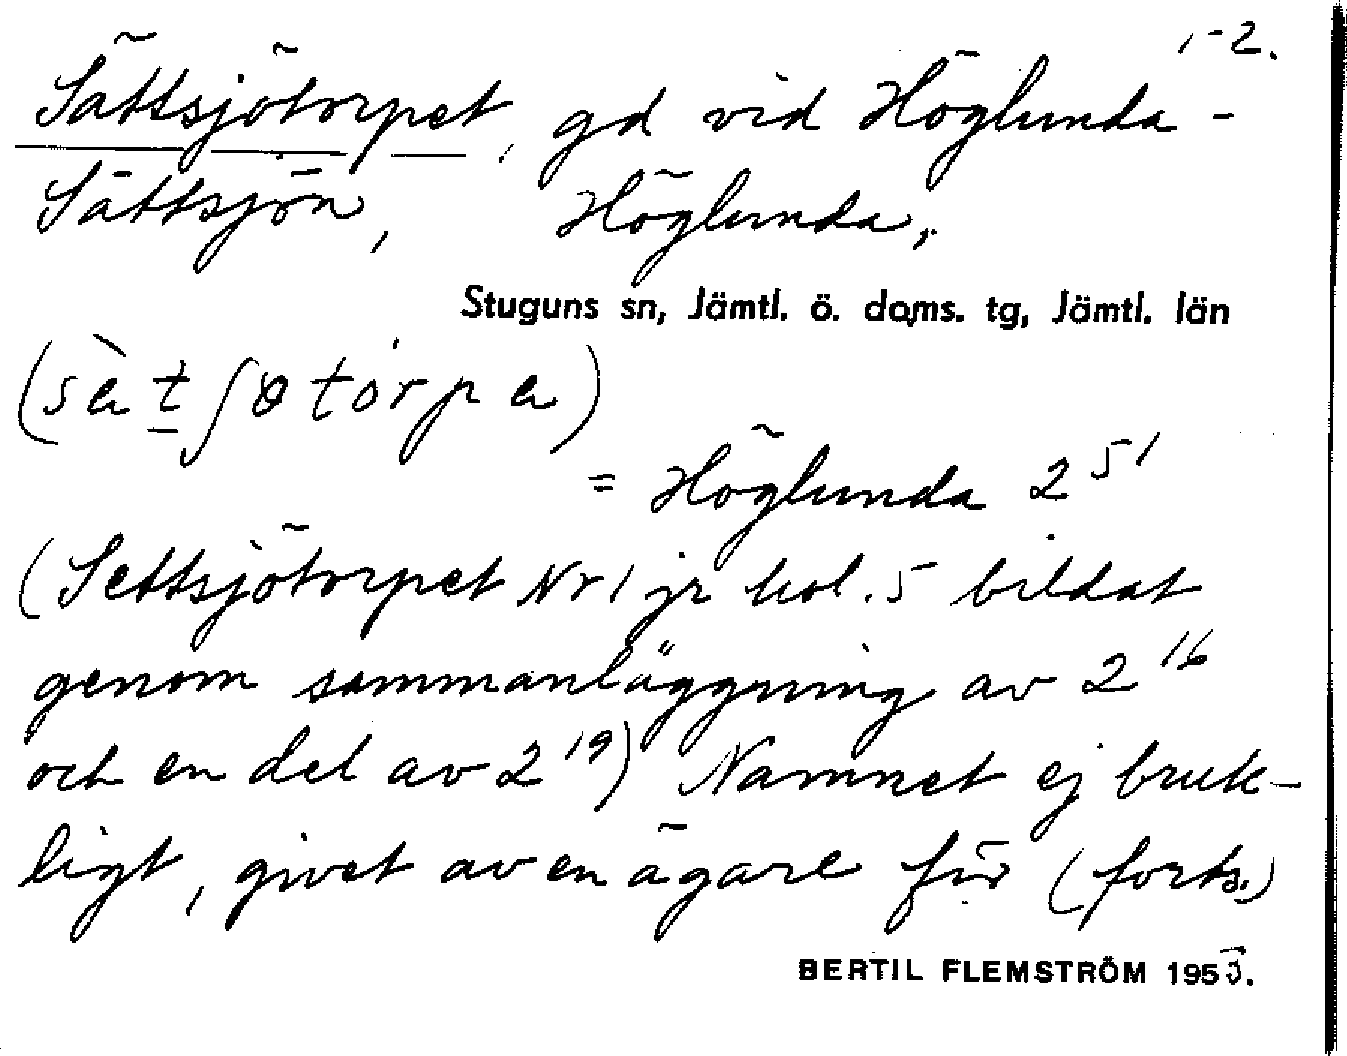 1-2.
Sättsjötorpet, gd vid Höglunda-
Sättsjön, Höglunda,
Stuguns sn, Jämtl. ö. doms. tg, Jämtl. län
(sàt̲ʃɵtórpa)
= Höglunda 2⁵¹
(Settsjötorpet Nr 1 jr kol. 5 bildat
genom sammanläggning av 2¹⁶
och en del av 2¹⁹) Namnet ej bruk-
ligt, givet av en ägare för (forts.)
BERTIL FLEMSTRÖM 1953.